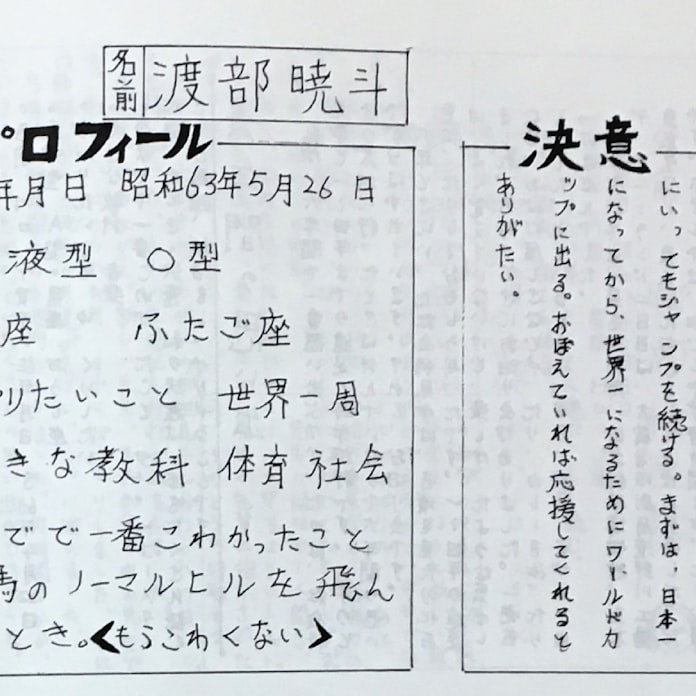 名前 渡部暁斗
プロフィール
年月日 昭和63年5月26日
液型 O型
座 ふたご座
やりたいこと 世界一周
きな教科 体育 社会
でで一番こわかったこと
馬のノーマルヒルを飛ん
とき。<もうこわくない>
決意
にいってもジャンプを続ける。まずは、日本一
になってから、世界一になるためにワールドカ
ップに出る。おぼえていれば応援してくれると
ありがたい。